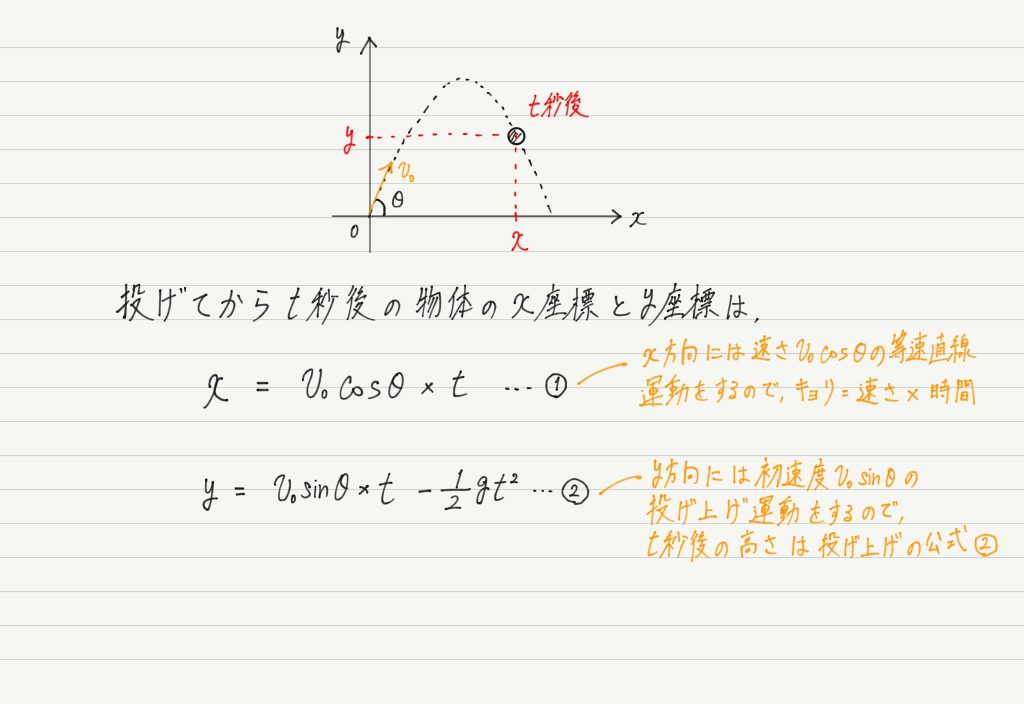 y
t秒後
y
v₀
θ
0
x
x
投げてからt秒後の物体のx座標とy座標は,
x = v₀cosθ × t … ①
x方向には速さv₀cosθの等速直線
運動をするので, キョリ=速さ×時間
y = v₀sinθ×t - 1/2 gt² … ②
y方向には初速度v₀sinθの
投げ上げ運動をするので,
t秒後の高さは投げ上げの公式②